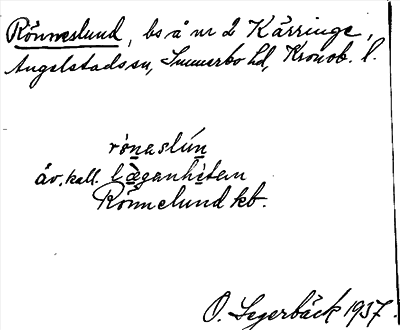 Rönneslund, bs å nr 2 Kärringe,
Angelstads sn, Sunnerbo hd, Kronob. l.
rönaslún
äv. kall. lǽganhitem
Rönnelund kb.
O. Segerbäck 1937.